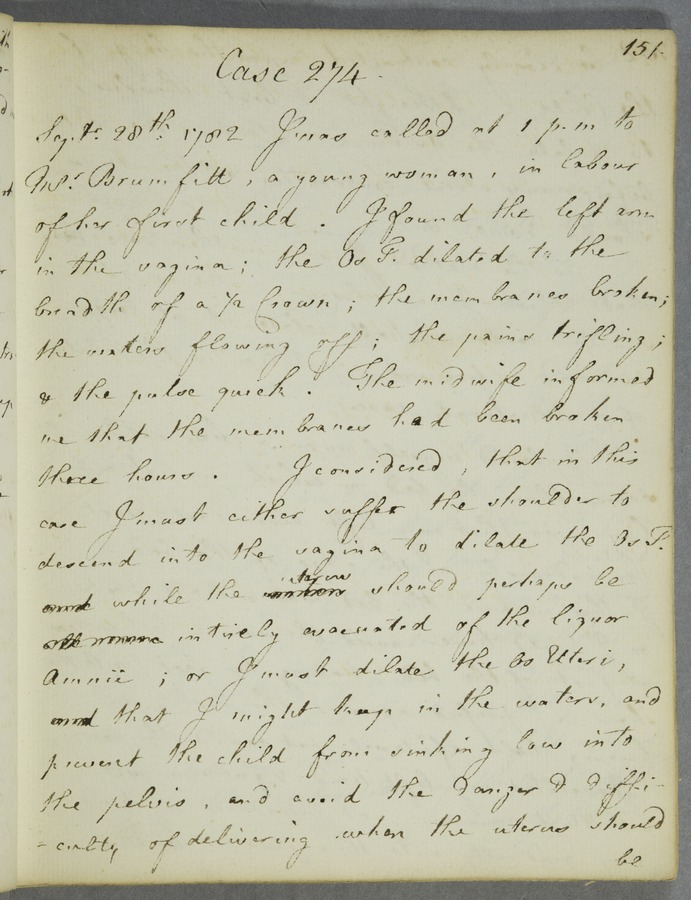 151
Case 274.
Septr. 28th. 1782 I was called at 1 p.m to
Mrs. Brumfitt, a young woman, in labour
of her first child. I found the left arm
in the vagina; the Os T. dilated to the
breadth of a 1/2 Crown; the membranes broken;
the waters flowing off; the pains trifling;
& the pulse quick. The midwife informed
me that the membranes had been broken
three hours. I considered, that in this
case I must either suffer the shoulder to
descend into the vagina to dilate the Os T.
and while the uterus should perhaps be
intirely evacuated of the liquor
Amnii; or I must dilate the Os Uteri,
and that I might keep in the waters, and
prevent the child from sinking low into
the pelvis, and avoid the danger & diffi-
-culty of delivering when the uterus should
be